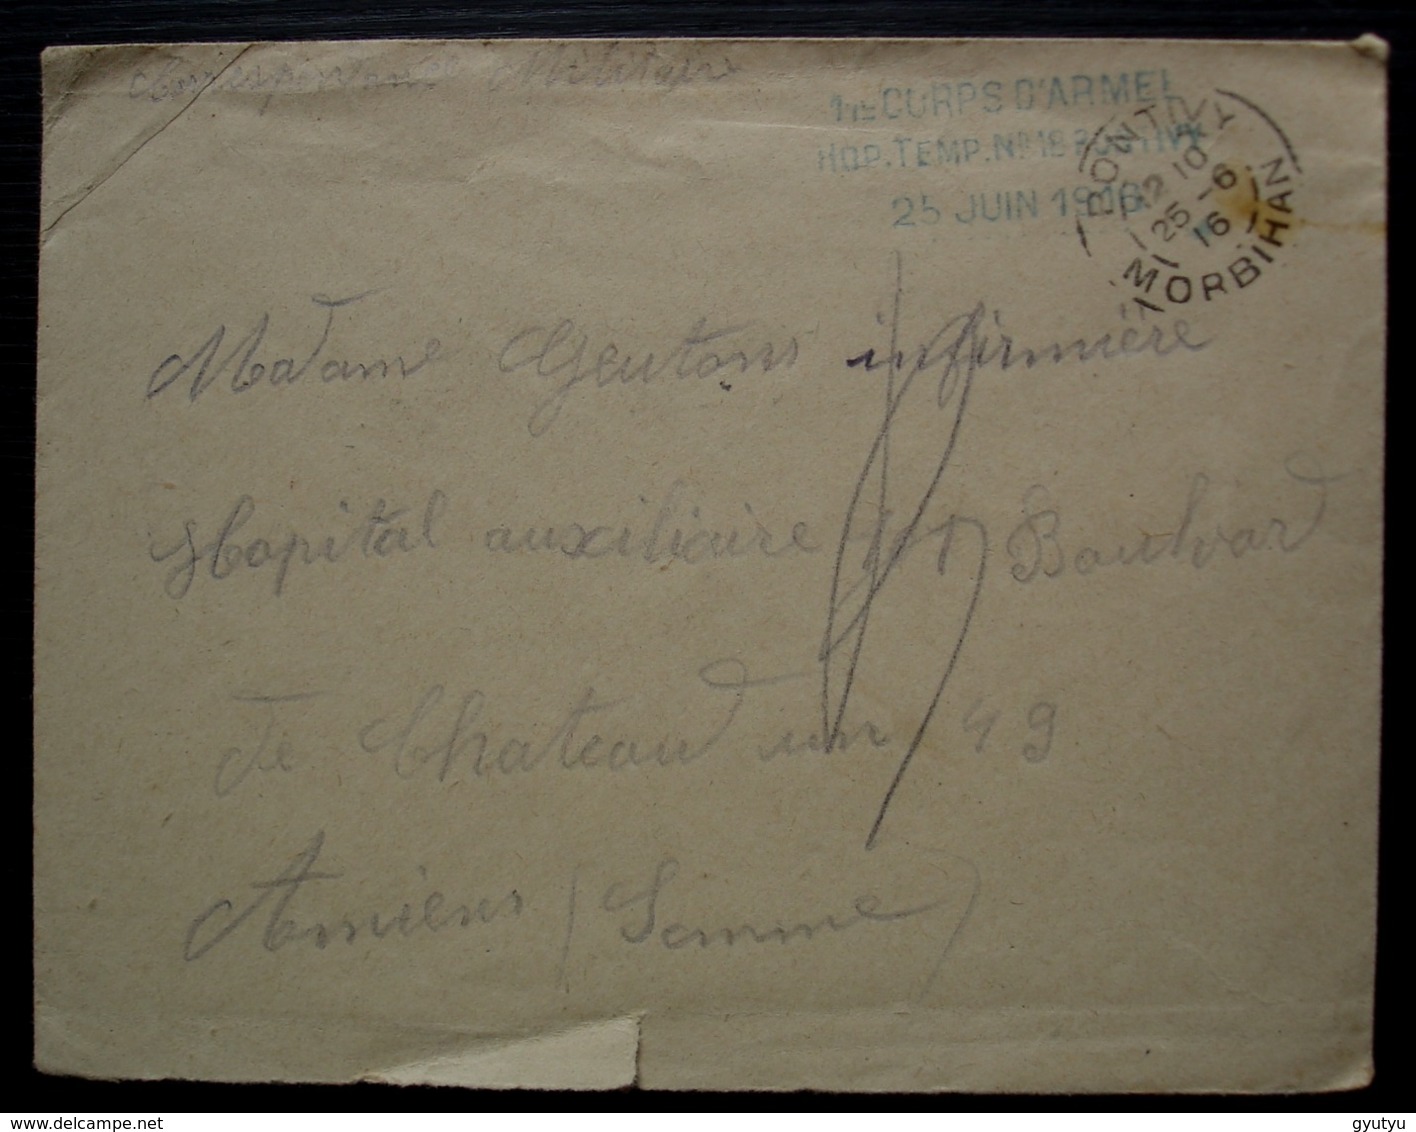 Correspondance Militaire
11e CORPS D'ARMEE
HOP. TEMP. N° 18 PONTIVY
25 JUIN 1916
PONTIVY
12 10
25 - 6
16
MORBIHAN
Madame Gentons infirmière
Hopital auxiliaire Boulvard
de Chateaudun 49
Amiens (Somme)
delcampe.net
gyutyu